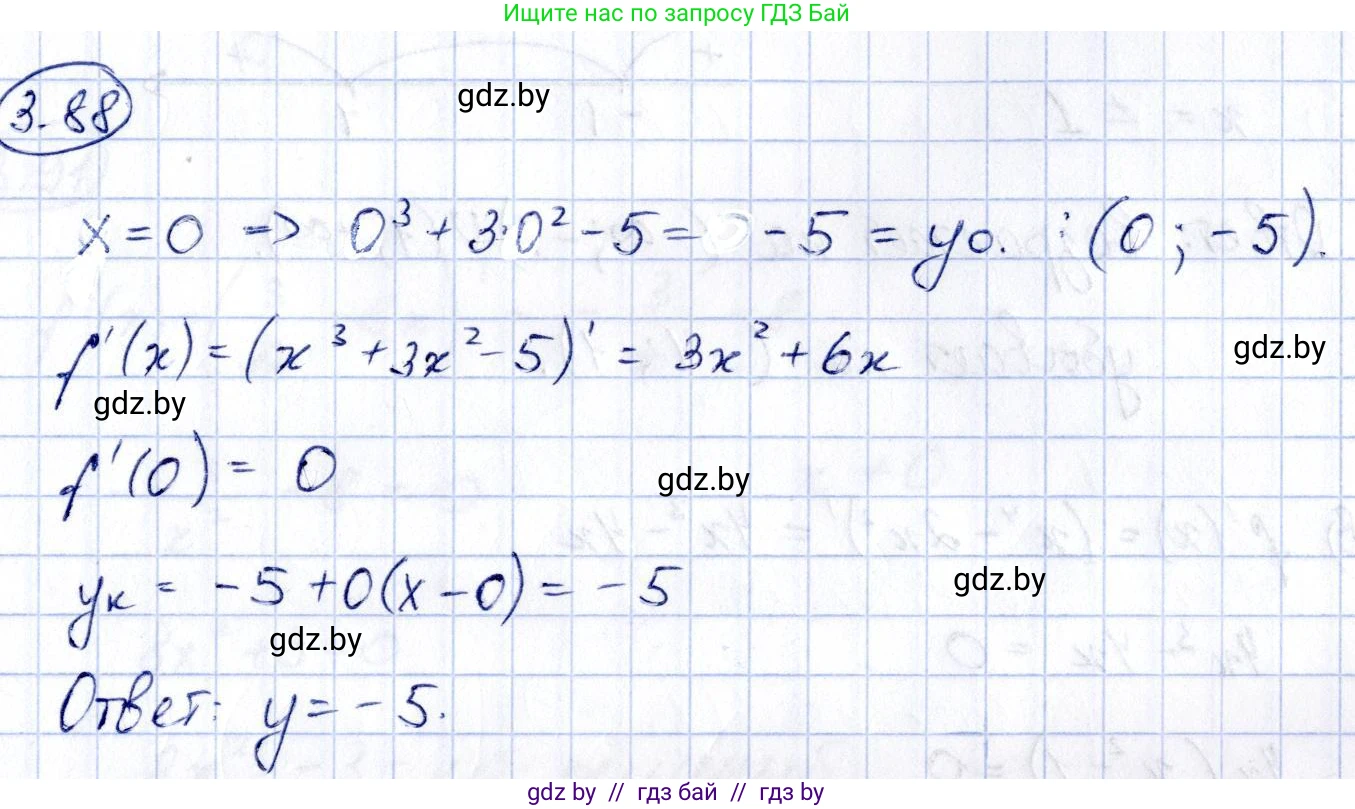 Ищите нас по запросу ГДЗ Бай
3.88
gdz.by
x = 0 => 0³ + 3·0² - 5 = -5 = y0. : (0 ; -5).
f'(x) = (x³ + 3x² - 5)' = 3x² + 6x
gdz.by
gdz.by
f'(0) = 0
gdz.by
yк = -5 + 0(x - 0) = -5
gdz.by
gdz.by
Ответ: y = -5.
gdz.by // гдз бай // гдз by